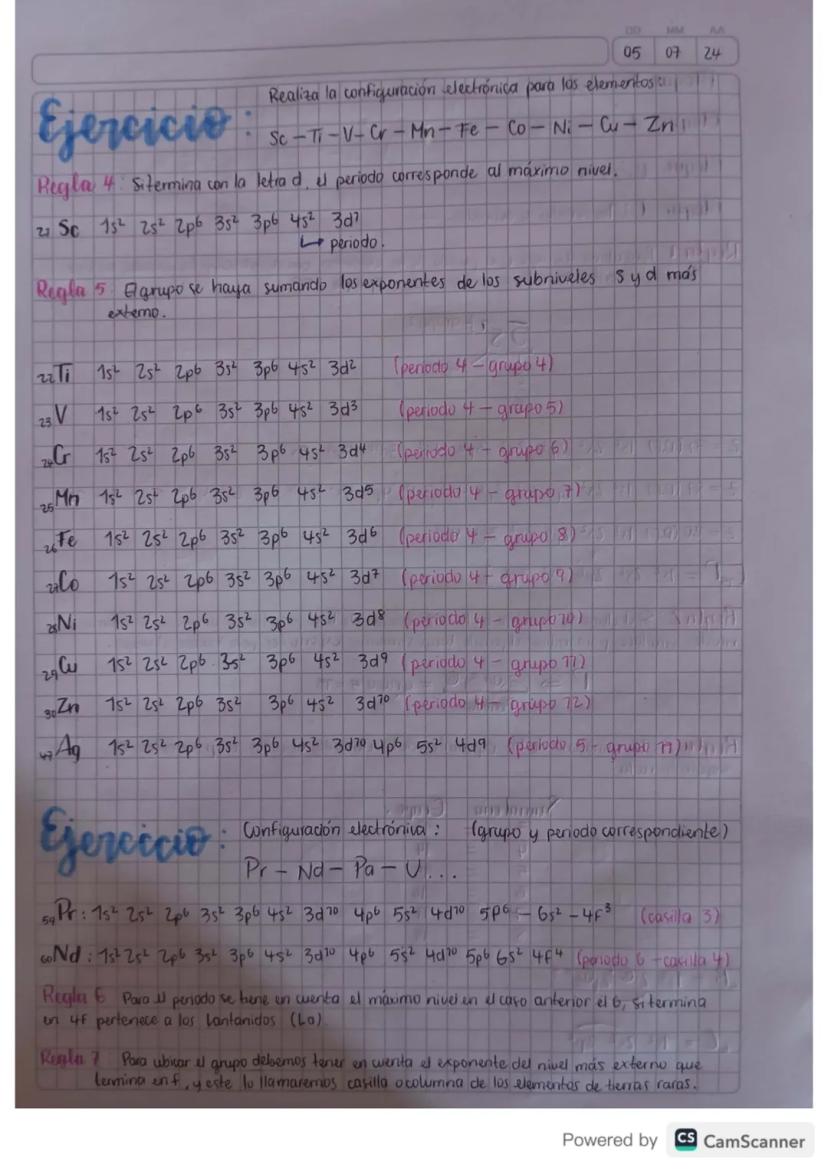 DD MM AA
05 07 24
Realiza la configuración electrónica para los elementos:
Ejercicio:
Sc – Ti – V – Cr – Mn – Fe – Co – Ni – Cu – Zn
Regla 4: Si termina con la letra d, el periodo corresponde al máximo nivel.
21 Sc 1s² 2s² 2p⁶ 3s² 3p⁶ 4s² 3d¹
↳ periodo.
Regla 5 El grupo se haya sumando los exponentes de los subniveles s y d más
externo.
22 Ti 1s² 2s² 2p⁶ 3s² 3p⁶ 4s² 3d² (periodo 4 – grupo 4)
23 V 1s² 2s² 2p⁶ 3s² 3p⁶ 4s² 3d³ (periodo 4 – grupo 5)
24 Cr 1s² 2s² 2p⁶ 3s² 3p⁶ 4s² 3d⁴ (periodo 4 – grupo 6)
25 Mn 1s² 2s² 2p⁶ 3s² 3p⁶ 4s² 3d⁵ (periodo 4 – grupo 7)
26 Fe 1s² 2s² 2p⁶ 3s² 3p⁶ 4s² 3d⁶ (periodo 4 – grupo 8)
27 Co 1s² 2s² 2p⁶ 3s² 3p⁶ 4s² 3d⁷ (periodo 4 – grupo 9)
28 Ni 1s² 2s² 2p⁶ 3s² 3p⁶ 4s² 3d⁸ (periodo 4 – grupo 10)
29 Cu 1s² 2s² 2p⁶ 3s² 3p⁶ 4s² 3d⁹ (periodo 4 – grupo 11)
30 Zn 1s² 2s² 2p⁶ 3s² 3p⁶ 4s² 3d¹⁰ (periodo 4 – grupo 12)
47 Ag 1s² 2s² 2p⁶ 3s² 3p⁶ 4s² 3d¹⁰ 4p⁶ 5s² 4d⁹ (periodo 5 – grupo 11)
Ejercicio: Configuración electrónica: (grupo y periodo correspondiente)
Pr – Nd – Pa – U...
59 Pr: 1s² 2s² 2p⁶ 3s² 3p⁶ 4s² 3d¹⁰ 4p⁶ 5s² 4d¹⁰ 5p⁶ – 6s² – 4f³ (casilla 3)
60 Nd: 1s² 2s² 2p⁶ 3s² 3p⁶ 4s² 3d¹⁰ 4p⁶ 5s² 4d¹⁰ 5p⁶ 6s² 4f⁴ (periodo 6 – casilla 4)
Regla 6 Para el periodo se tiene en cuenta el máximo nivel en el caso anterior el 6, si termina
en 4f pertenece a los Lantanidos (La).
Regla 7 Para ubicar el grupo debemos tener en cuenta el exponente del nivel más externo que
termina en f, y este lo llamaremos casilla o columna de los elementos de tierras raras.
Powered by CS CamScanner